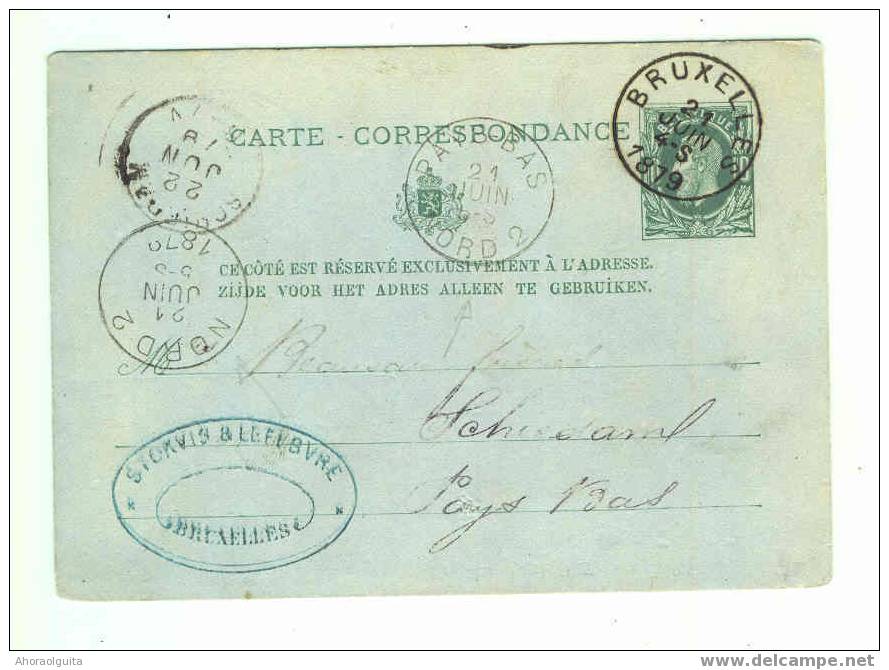 CARTE - CORRESPONDANCE
BRUXELLES
21
JUIN
4-S
1879
PAYS-BAS
21
JUIN
NORD 2
SCHIEDAM
22
JUN
NORD 2
21
JUIN
1879
CE CÔTÉ EST RÉSERVÉ EXCLUSIVEMENT À L'ADRESSE.
ZIJDE VOOR HET ADRES ALLEEN TE GEBRUIKEN.
M
Schiedam
Pays Bas
STOKVIS & LEFEBVRE
BRUXELLES
Ahoraolguita
www.delcampe.net